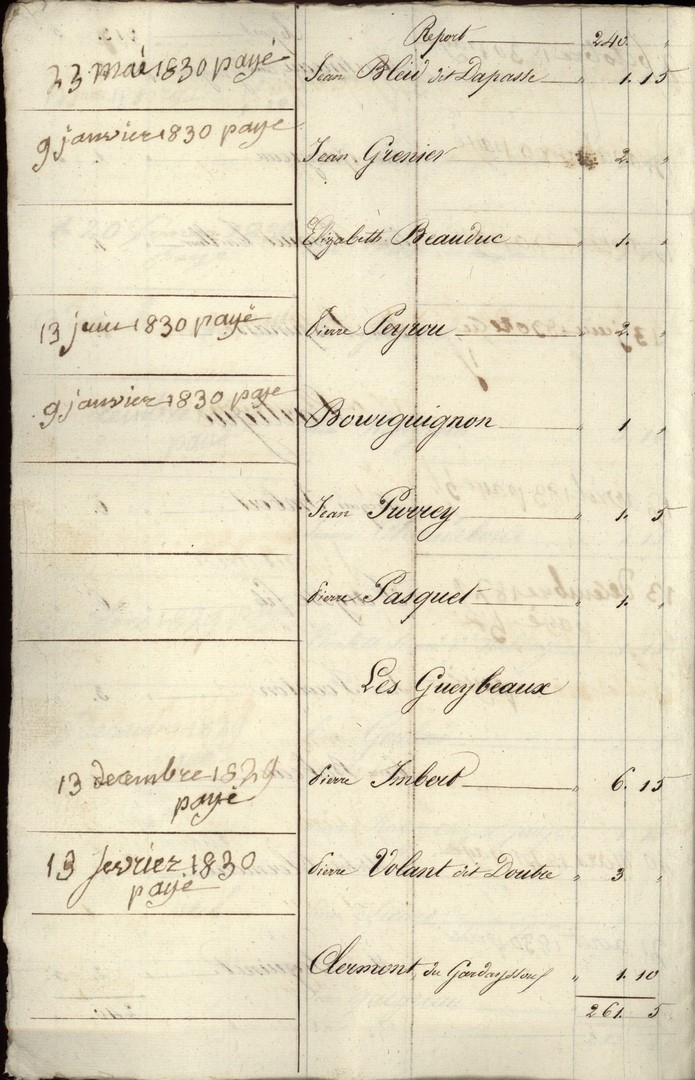 Report 240. "
23 mai 1830 payé Jean Bleid dit Dapasse " 1. 15
9 janvier 1830 payé Jean Grenier 2. "
Elizabeth Beauduc " 1. "
13 juin 1830 payé Pierre Peyrou " 2. "
9 janvier 1830 payé Bourguignon " 1 "
Jean Purrey " 1. 5
Pierre Pasquet " 1. "
Les Gueybeaux
13 decembre 1829 payé Pierre Imbert " 6. 15
13 fevrier 1830 payé Pierre Volant dit Doubre " 3 "
Clermont du " 1. 10
261. 5